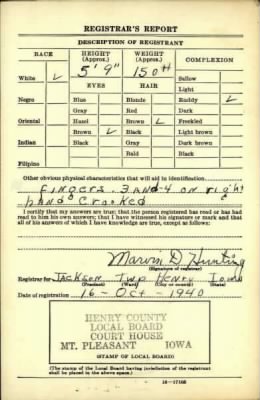 REGISTRAR'S REPORT
DESCRIPTION OF REGISTRANT
RACE HEIGHT (Approx.) WEIGHT (Approx.) COMPLEXION
5' 9" 150 #
White ✓ Sallow
EYES HAIR Light
Negro Blue Blonde Ruddy ✓
Gray Red Dark
Oriental Hazel Brown ✓ Freckled
Brown ✓ Black Light brown
Indian Black Gray Dark brown
Bald Black
Filipino
Other obvious physical characteristics that will aid in identification
Fingers 3 and 4 on right
hand crooked
I certify that my answers are true; that the person registered has read or has had
read to him his own answers; that I have witnessed his signature or mark and that
all of his answers of which I have knowledge are true, except as follows:
Marvin D. Hunting
(Signature of registrar)
Registrar for Jackson Twp Henry Iowa
(Precinct) (Ward) (City or county) (State)
Date of registration 16 - Oct - 1940
HENRY COUNTY
LOCAL BOARD
COURT HOUSE
MT. PLEASANT IOWA
(STAMP OF LOCAL BOARD)
(The stamp of the Local Board having jurisdiction of the registrant
shall be placed in the above space.)
16-17105